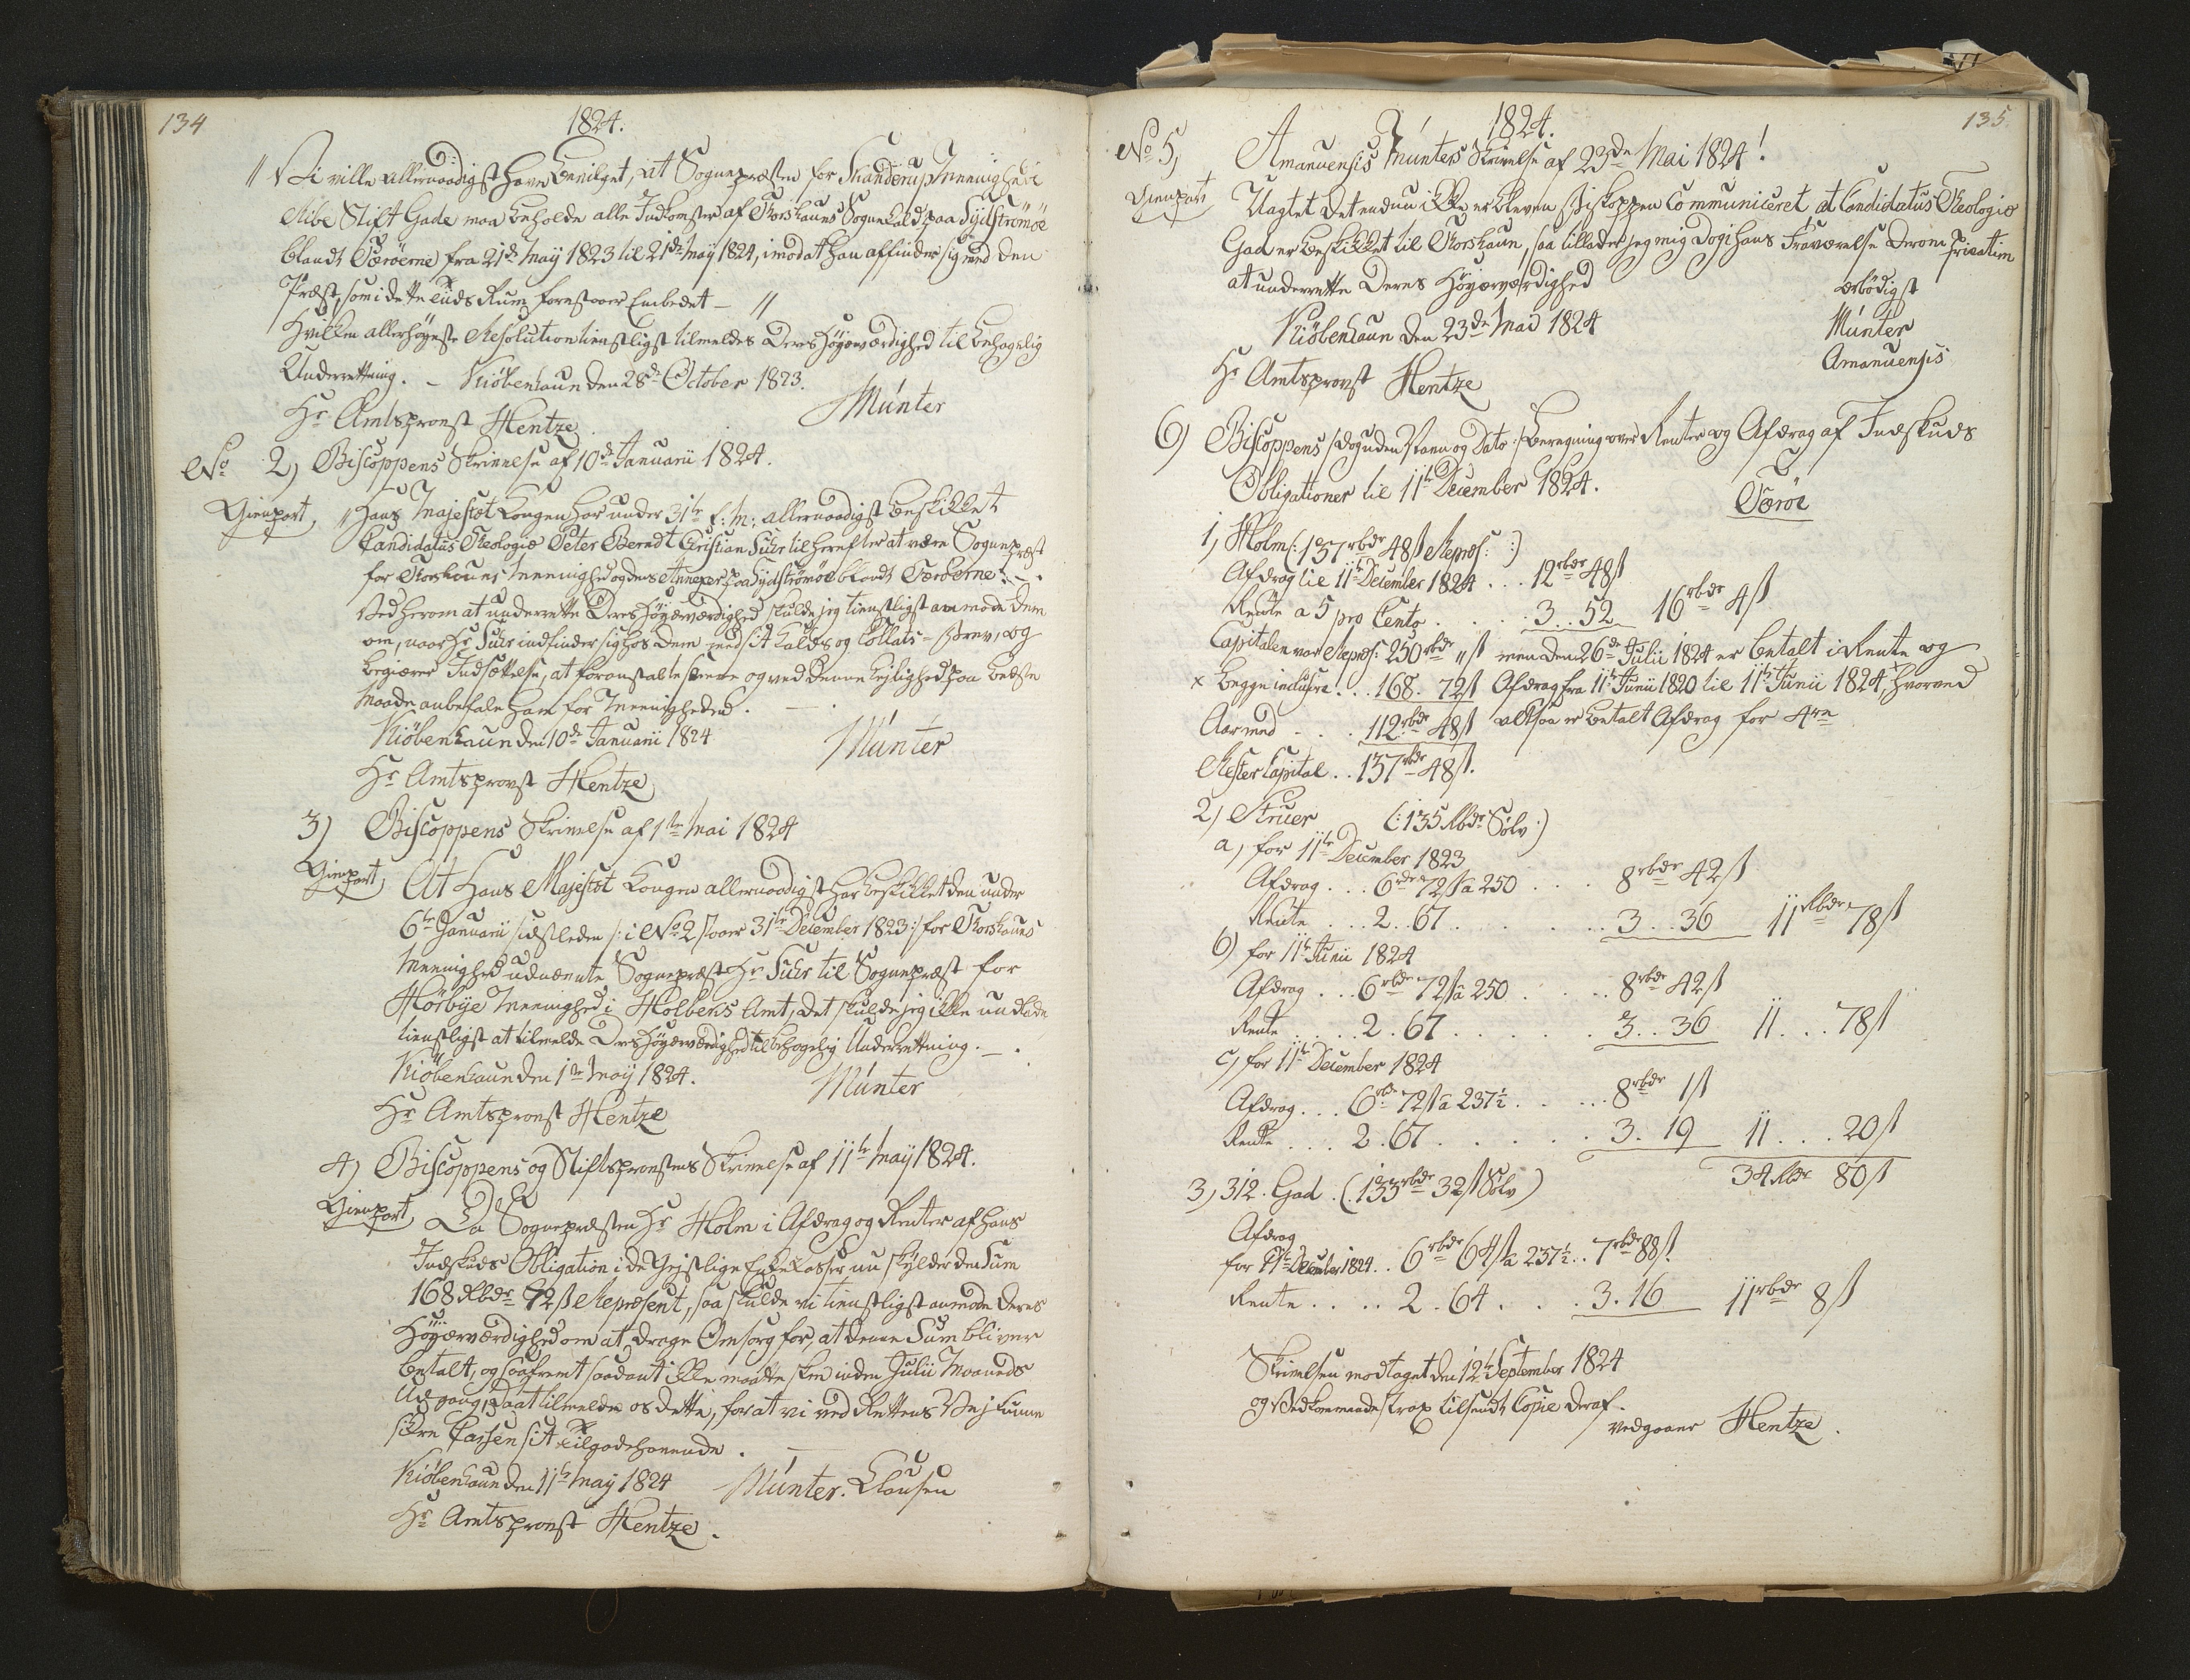 134
1824.
" Vi ville allernaadigst have bevilget, at Sognepræsten for Skanderup Meenighed i
Ribe Stift Gade maa beholde alle Indkomster af Thorshauns Sognekald paa Sydströmöe
blandt Færöerne fra 21de May 1823 til 21de May 1824, imod at han affinder sig med den
Præst, som i dette Tiids Rum forestaaer Embedet — "
Hvilken allerhöyeste Resolution tienstligst tilmeldes Deres Höyærværdighed til behagelig
Underretning. – Kiöbenhaun den 28de October 1823.
Münter
Hr Amtsprovst Hentze
No 2) Biscoppens Skrivelse af 10de Januarii 1824.
Gienpart
" Hans Majestæt Kongen har under 31te f: M: allernaadigst beskikket
Candidatus Theologiæ Peter Berndt Christian Suhr til herefter at være Sognepræst
for Thorshauns Meenighed og dens Annexer paa Sydströmöe blandt Færöerne. –
Ved herom at underrette Deres Höyærværdighed skulde jeg tienstligst anmode Dem
om, naar Hr Suhr indfinder sig hos Dem med sit Kalds og Collats-Brev, og
begiærer Indsættelse, at foranstalte samme og ved denne Leylighed paa bedste
Maade anbefale ham for Meenigheden. —
Kiöbenhaun den 10de Januarii 1824.
Münter
Hr Amtsprovst Hentze
3) Biscoppens Skrivelse af 1ste Mai 1824
Gienpart
At Hans Majestæt Kongen allernaadigst har beskikket den under
6te Januarii sidstleden /: i No 2 staaer 31te December 1823 :/ for Thorshauns
Meenighed udnævnte Sognepræst Hr Suhr til Sognepræst for
Hörbye Meenighed i Holbeks Amt, det skulde jeg ikke undlade
tienstligst at tilmelde Deres Höyærværdighed til behagelig Underretning. —
Kiöbenhaun den 1ste May 1824.
Münter
Hr Amtsprovst Hentze
4) Biscoppens og Stiftsprovstens Skrivelse af 11te May 1824.
Gienpart
Da Sognepræsten Hr Holm i Afdrag og Renter af hans
Indskuds Obligation i de Gejstlige Enkekasser nu skylder den Sum
168 Rbdr 72 ß Repræsent., saa skulde vi tienstligst anmode Deres
Höyærværdighed om at drage Omsorg for, at denne Sum bliver
betalt, og saafremt saadant ikke maatte skee inden Julii Maaneds
Udgang, da at tilmelde os dette, for at vi ved Rettens Vej kunne
sikre Cassen sit Tilgodehavende. —
Kiöbenhaun den 11te May 1824
Münter. Clausen
Hr Amtsprovst Hentze.
1824.
135.
No 5,
Amanuensis Münters Skrivelse af 23de Mai 1824!
Gienpart
Uagtet det endnu ikke er bleven Biskoppen Communiceret, at Candidatus Theologiæ
Gad er beskikket til Thorshaun, saa tillader jeg mig dog i hans Fraværelse derom privatim
at underrette Deres Höyærværdighed
ærbödigst
Kiöbenhaun den 23de Mai 1824
Münter
Amanuensis
Hr Amtsprovst Hentze
6) Biscoppens /: dog uden Navn og Dato :/ Beregning over Renter og Afdrag af Indskuds
Obligationer til 11te December 1824.
Færöe
1, Holm (: 137 rbdr 48 ß Repræs: :)
Afdrag til 11te December 1824 . . . 12 rbdr 48 ß
Rente a 5 pro Cento . . . . 3 . . 52 16 rbdr 4 ß
Capitalen var Repræs: 250 rbdr " ß men den 26de Julii 1824 er betalt i Rente og
x begge inclusive . . . 168. 72 ß Afdrag fra 11te Junii 1820 til 11te Junii 1824, x hvorved
Aar med . . . 112 rbdr 48 ß altsaa er betalt Afdrag for 4re
Rester Capital . . 137 rbdr 48 ß.
2) Struer (: 135 Rbdr Sölv :)
a, for 11te December 1823
Afdrag . . . 6 rbdr 72 ß a 250 . . . . 8 rbdr 42 ß
Rente . . . 2 . . 67 . . . . . . 3 . . 36 11 Rbdr 78 ß
b) for 11te Junii 1824
Afdrag . . . 6 rbdr 72 ß a 250 . . . . . 8 rbdr 42 ß
Rente . . . . 2 . 67 . . . . . . 3 . . 36 11 . . . 78 ß
c, for 11te December 1824
Afdrag . . . 6 rbdr 72 ß a 237½ . . . . . 8 rbdr 1 ß
Rente . . . 2 . 67 . . . . . . 3 . 19 11 . . . 20 ß
34 Rbdr 80 ß
3, 312. Gad. (: 133 rbdr 32 ß Sölv)
Afdrag
for 11te December 1824 . . 6 rbdr 64 ß a 237½ . . 7 rbdr 88 ß.
Rente . . . . 2 . 64 . . . . 3 . 16 11 rbdr 8 ß
Skrivelsen modtaget den 12te September 1824
og Vedkommende strax tilsendt Copie deraf.
vedgaaer Hentze.